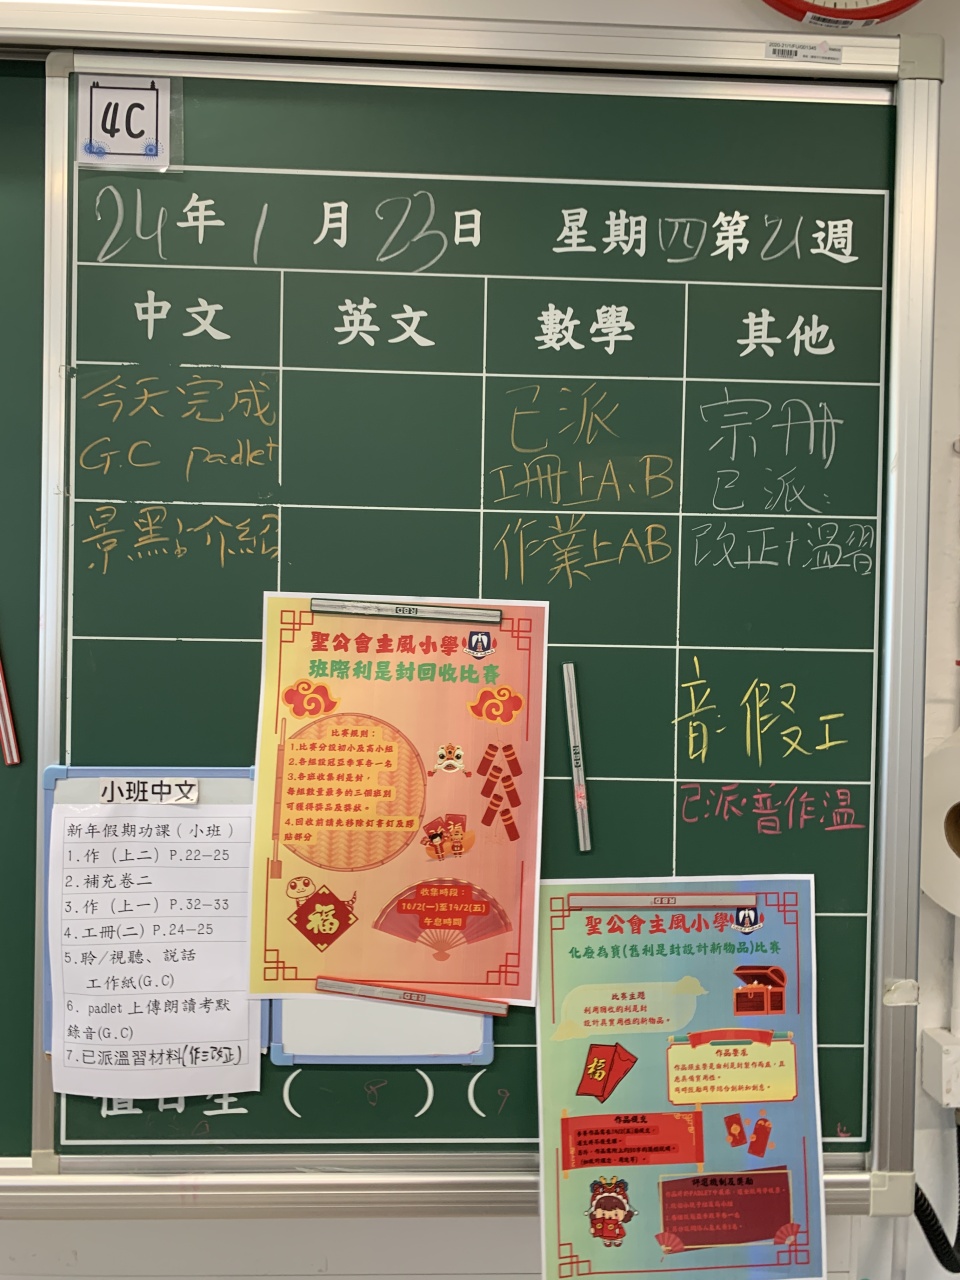 4C
24年1月23日 星期四第21週
中文 英文 數學 其他
今天完成
G.C padlet
景點介紹
已派
工冊上A、B
作業上AB
宗冊
已派:
改正+溫習
音:假工
已派:普作溫
小班中文
新年假期功課(小班)
1.作(上二)P.22-25
2.補充卷二
3.作(上一)P.32-33
4.工冊(二)P.24-25
5.聆/視聽、説話
工作紙(G.C)
6. padlet上傳朗讀考默
錄音(G.C)
7.已派溫習材料(作三改正)
值日生( 8 )( 9
聖公會主風小學
班際利是封回收比賽
比賽規則:
1.比賽分設初小及高小組
2.各組設冠亞季軍各一名
3.各班收集利是封,
每組數量最多的三個班別
可獲得獎品及獎狀。
4.回收前請先移除釘書釘及膠
貼部分
福
收集時段:
10/2(一)至14/2(五)
午息時間
聖公會主風小學
化廢為寶(舊利是封設計新物品)比賽
比賽主題
利用回收的利是封
設計具實用性的新物品。
福
作品要求
作品提交
評選機制及獎勵